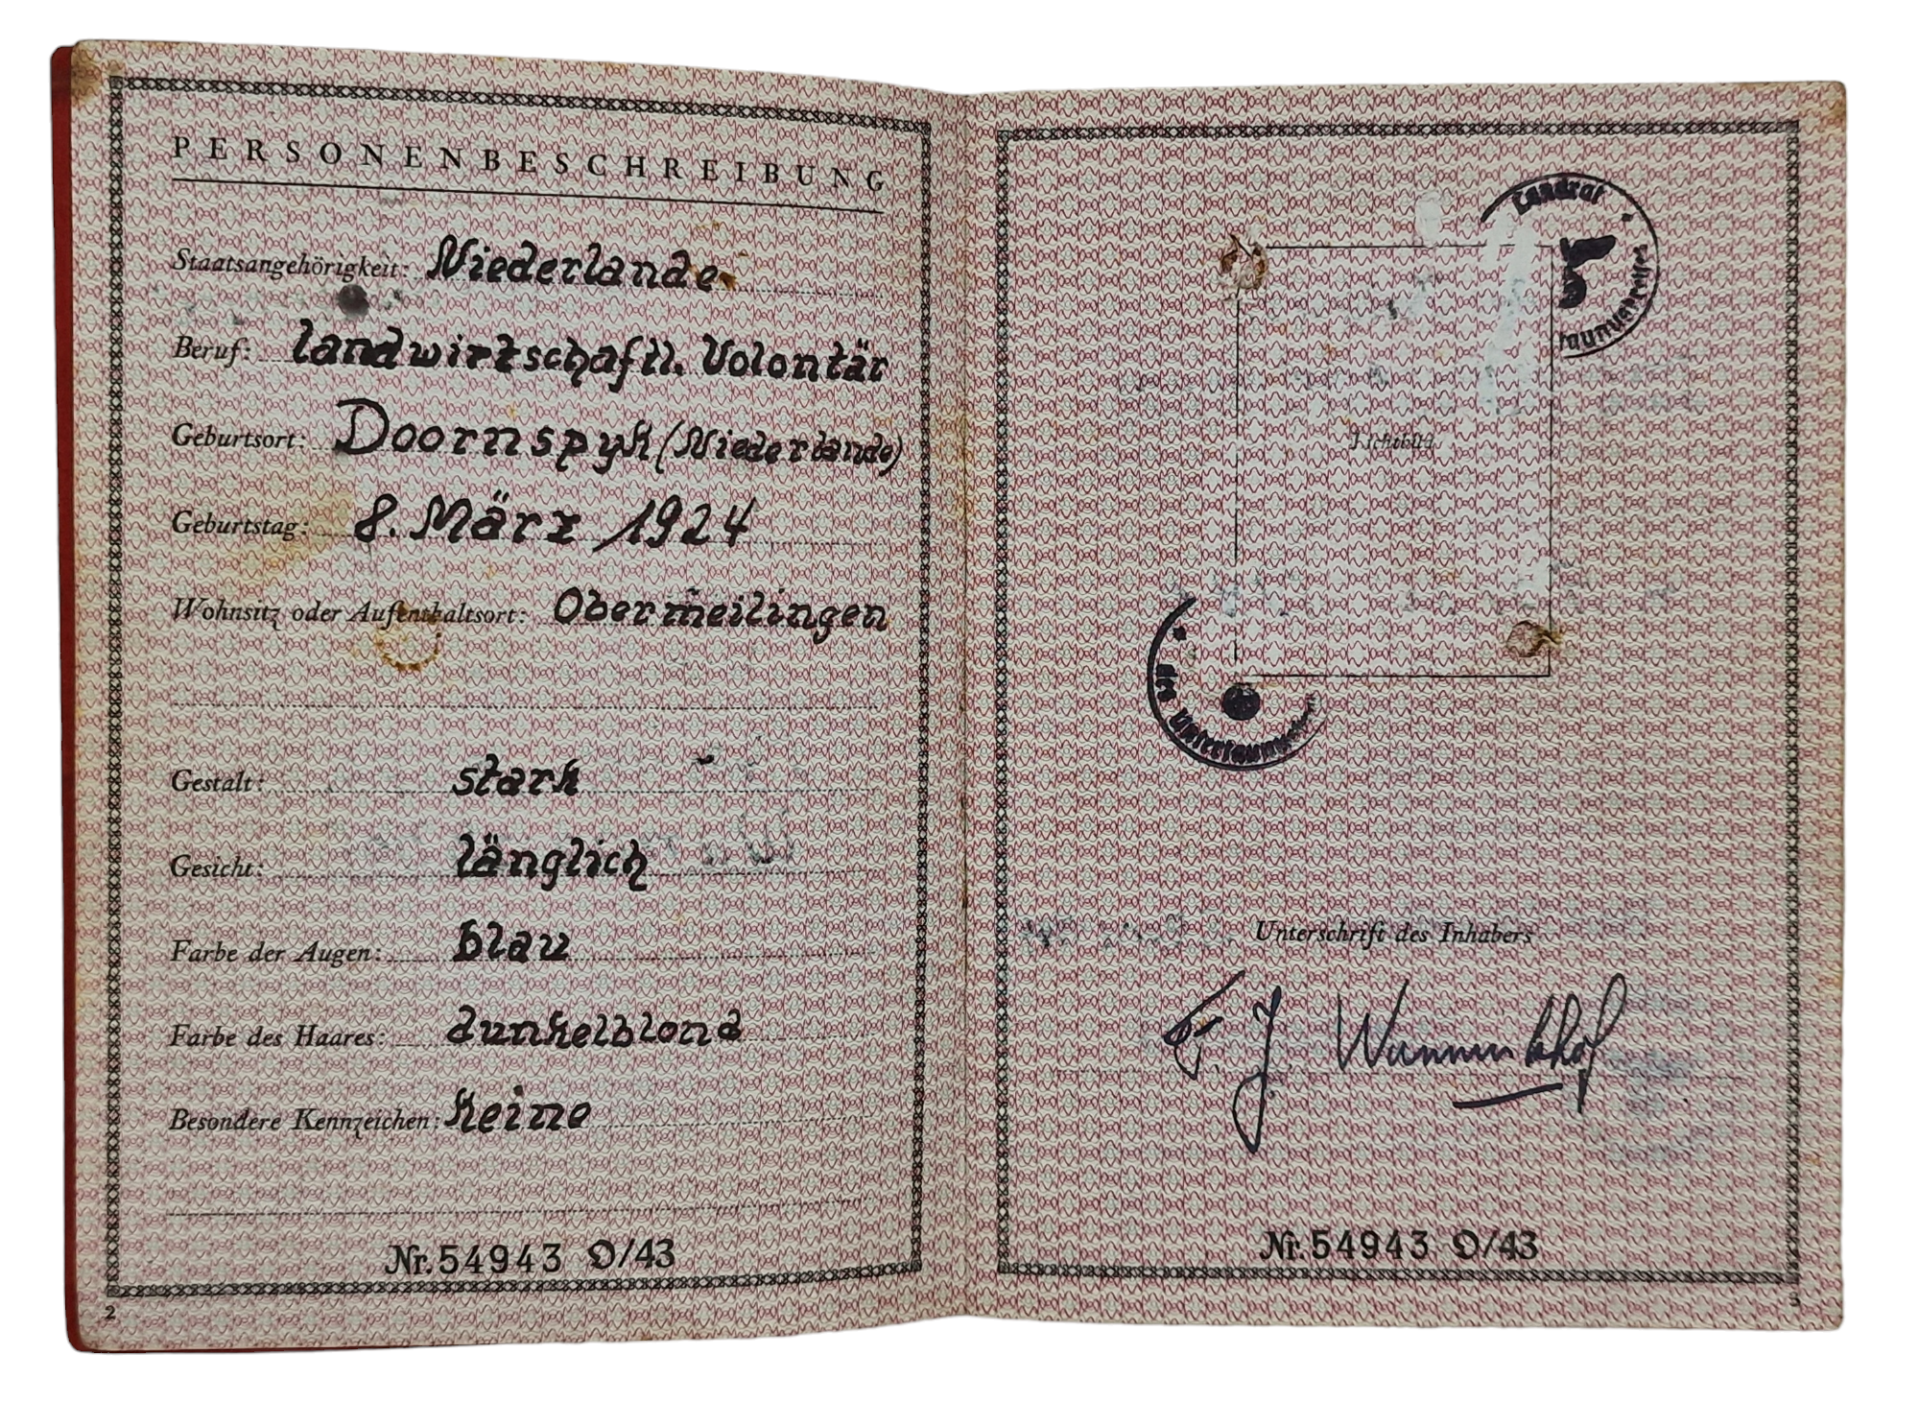 PERSONENBESCHREIBUNG
Staatsangehörigkeit: Niederlande
Beruf: landwirtschaftl. Volontär
Geburtsort: Doornspyk (Niederlande)
Geburtstag: 8. März 1924
Wohnsitz oder Aufenthaltsort: Obermeilingen
Gestalt: stark
Gesicht: länglich
Farbe der Augen: blau
Farbe des Haares: dunkelblond
Besondere Kennzeichen: keine
Nr. 54943 D/43
2
Landrat
taunuskreises
Lichtbild
des Untertaunuskreises
Unterschrift des Inhabers
F. J. Wanninkhof
Nr. 54943 D/43
3